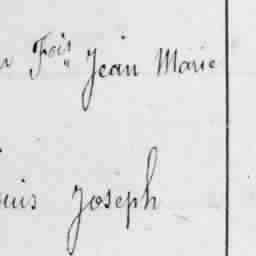 Fois Jean Marie
Joseph